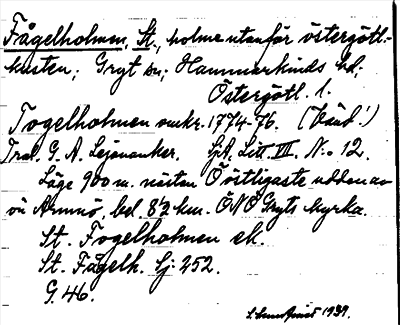 Fågelholmen, St., holme utanför östergötl.-
kusten; Gryt sn; Hammarkinds hd;
Östergötl. l.
Fogelholmen omkr. 1774-76. (Vänd!)
Trol. G. A. Lejonanker. SjA. Litt III, N:o 12.
Läge 900 m. nästan Ö östligaste udden av
ön Ämnö, bel. 8½ km. ÖNÖ Gryts kyrka.
St. Fogelholmen ek.
St. Fågelh. Sj: 252.
G. 46.
1939.